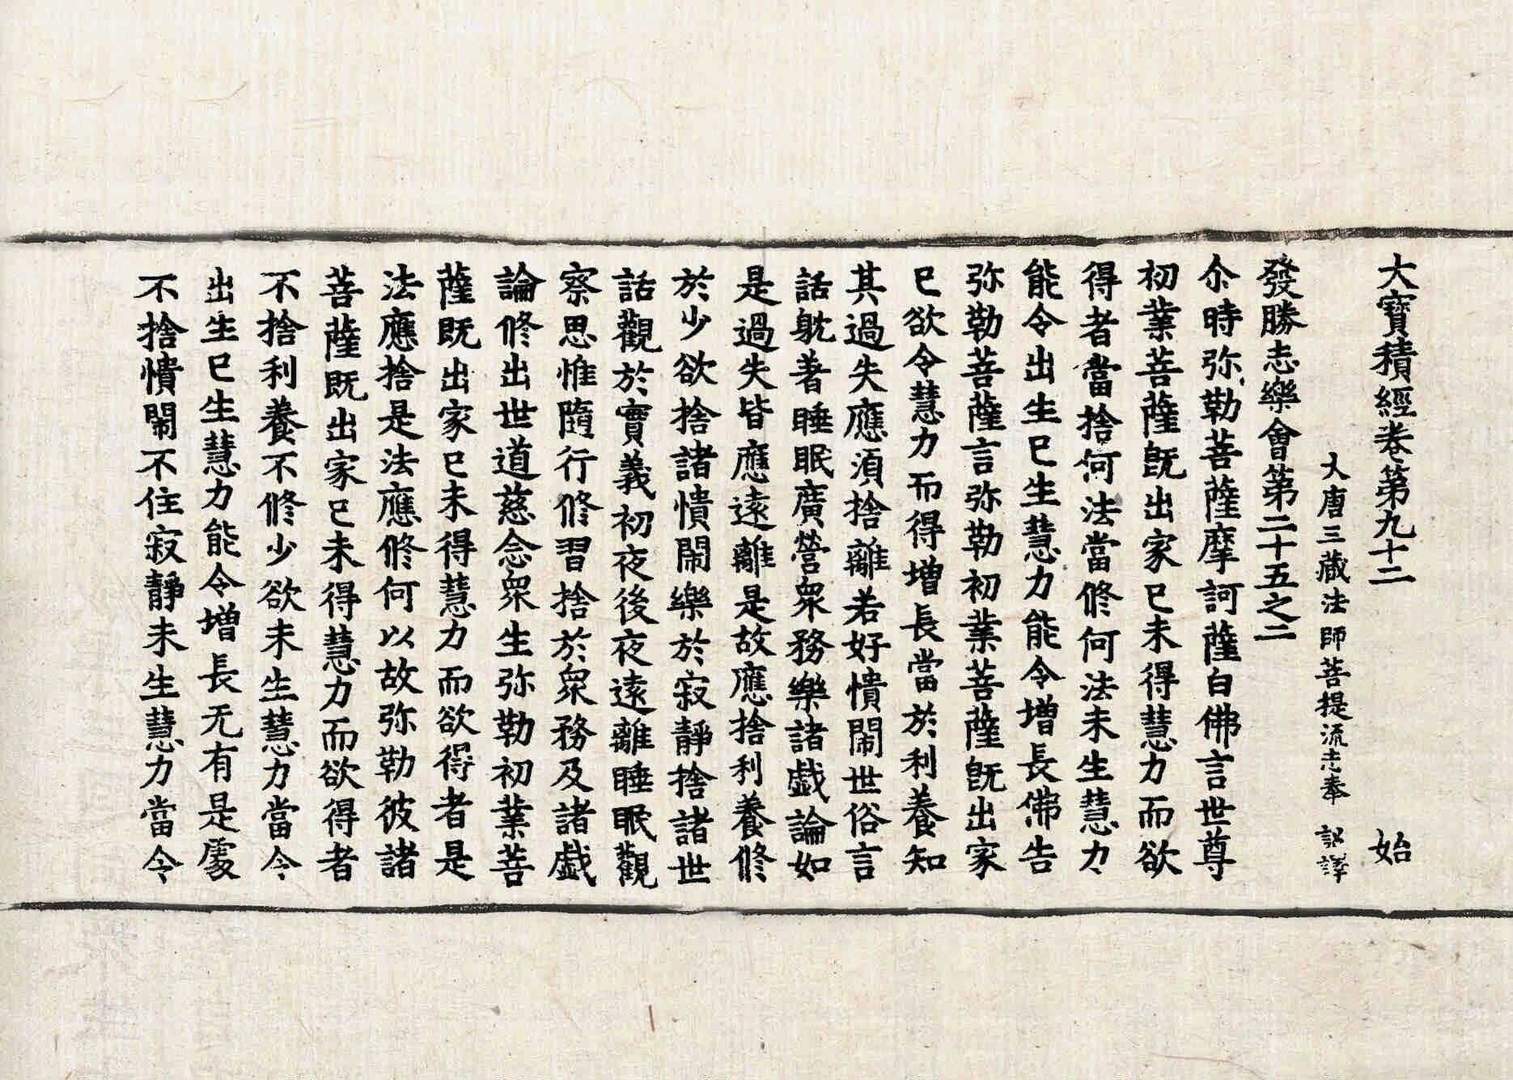 大寶積經卷第九十二 始
大唐三藏法師菩提流志奉 詔譯
發勝志樂會第二十五之二
尒時弥勒菩薩摩訶薩白佛言世尊
初業菩薩既出家已未得慧力而欲
得者當捨何法當修何法未生慧力
能令出生已生慧力能令增長佛告
弥勒菩薩言弥勒初業菩薩既出家
已欲令慧力而得增長當於利養知
其過失應須捨離若好憒閙世俗言
話躭著睡眠廣營衆務樂諸戲論如
是過失皆應遠離是故應捨利養修
於少欲捨諸憒閙樂於寂靜捨諸世
話觀於實義初夜後夜遠離睡眠觀
察思惟隨行修習捨於衆務及諸戲
論修出世道慈念衆生弥勒初業菩
薩既出家已未得慧力而欲得者是
法應捨是法應修何以故弥勒彼諸
菩薩既出家已未得慧力而欲得者
不捨利養不修少欲未生慧力當令
出生已生慧力能令增長无有是處
不捨憒閙不住寂靜未生慧力當令